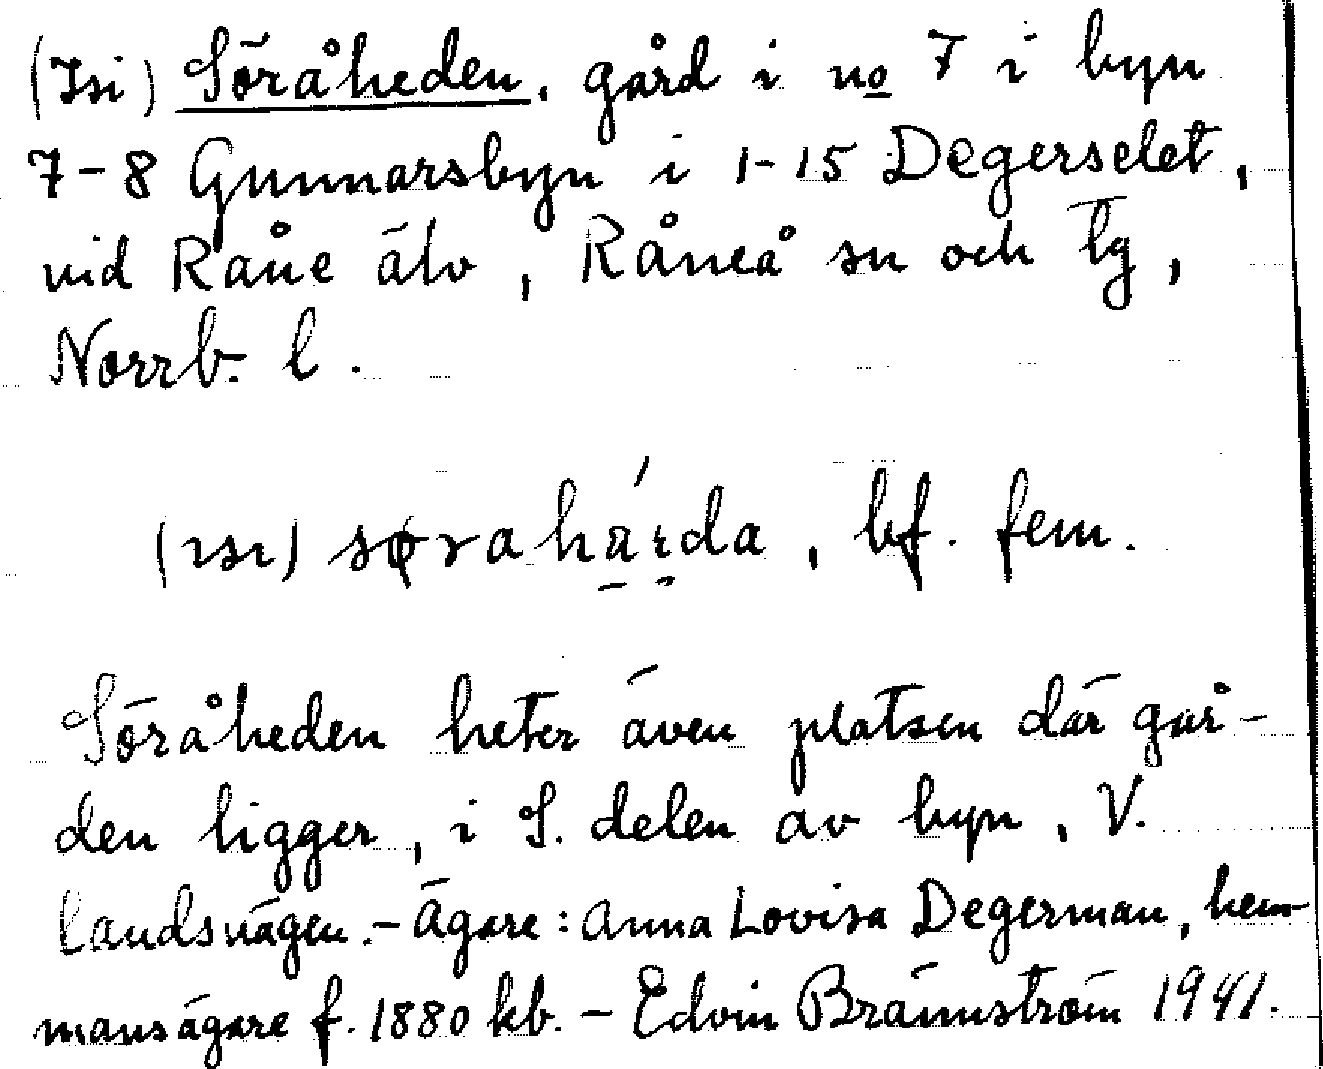 (Isi) Söråheden, gård i no 7 i byn
7-8 Gunnarsbyn i 1-15 Degerselet,
vid Råne älv, Råneå sn och tg,
Norrb. l.
(ısı) søraháıda, bf. fem.
Söråheden heter även platsen där går-
den ligger, i S. delen av byn, V.
landsvägen. - Ägare: Anna Lovisa Degerman, hem-
mansägare f. 1880 kb. - Edvin Brännström 1941.